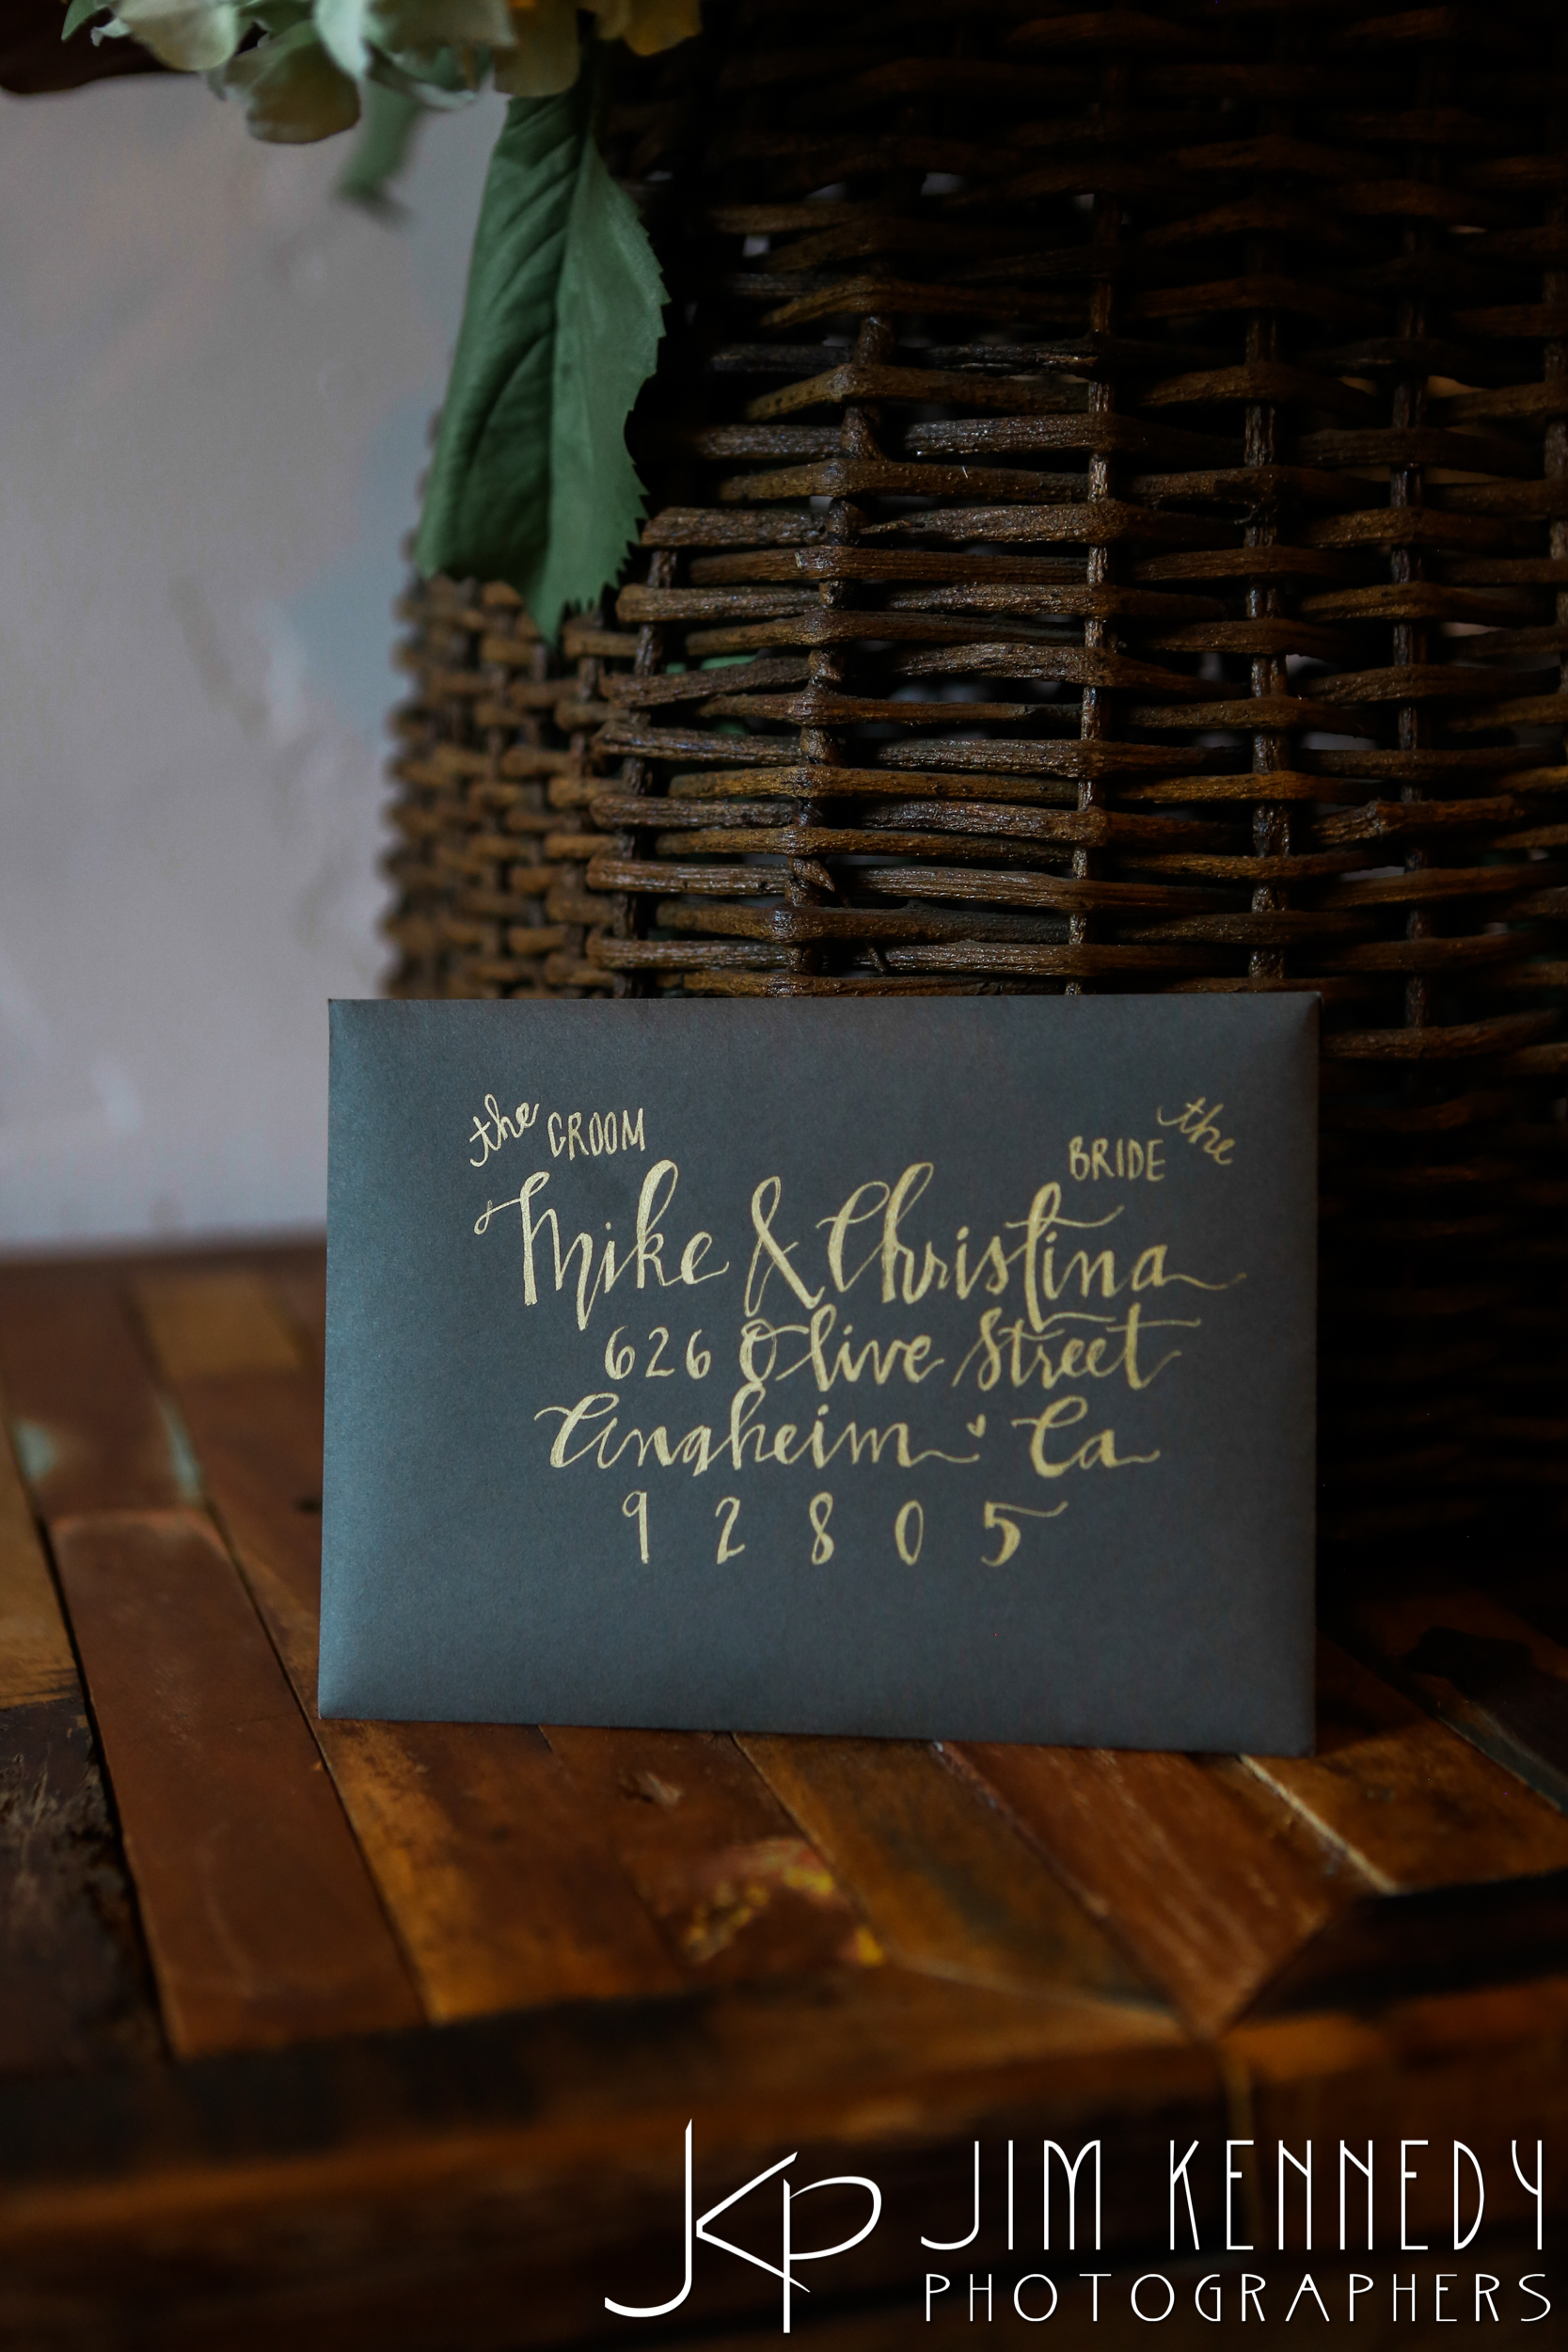 the GROOM
BRIDE the
Mike & Christina
626 Olive Street
Anaheim Ca
92805
JKP JIM KENNEDY
PHOTOGRAPHERS